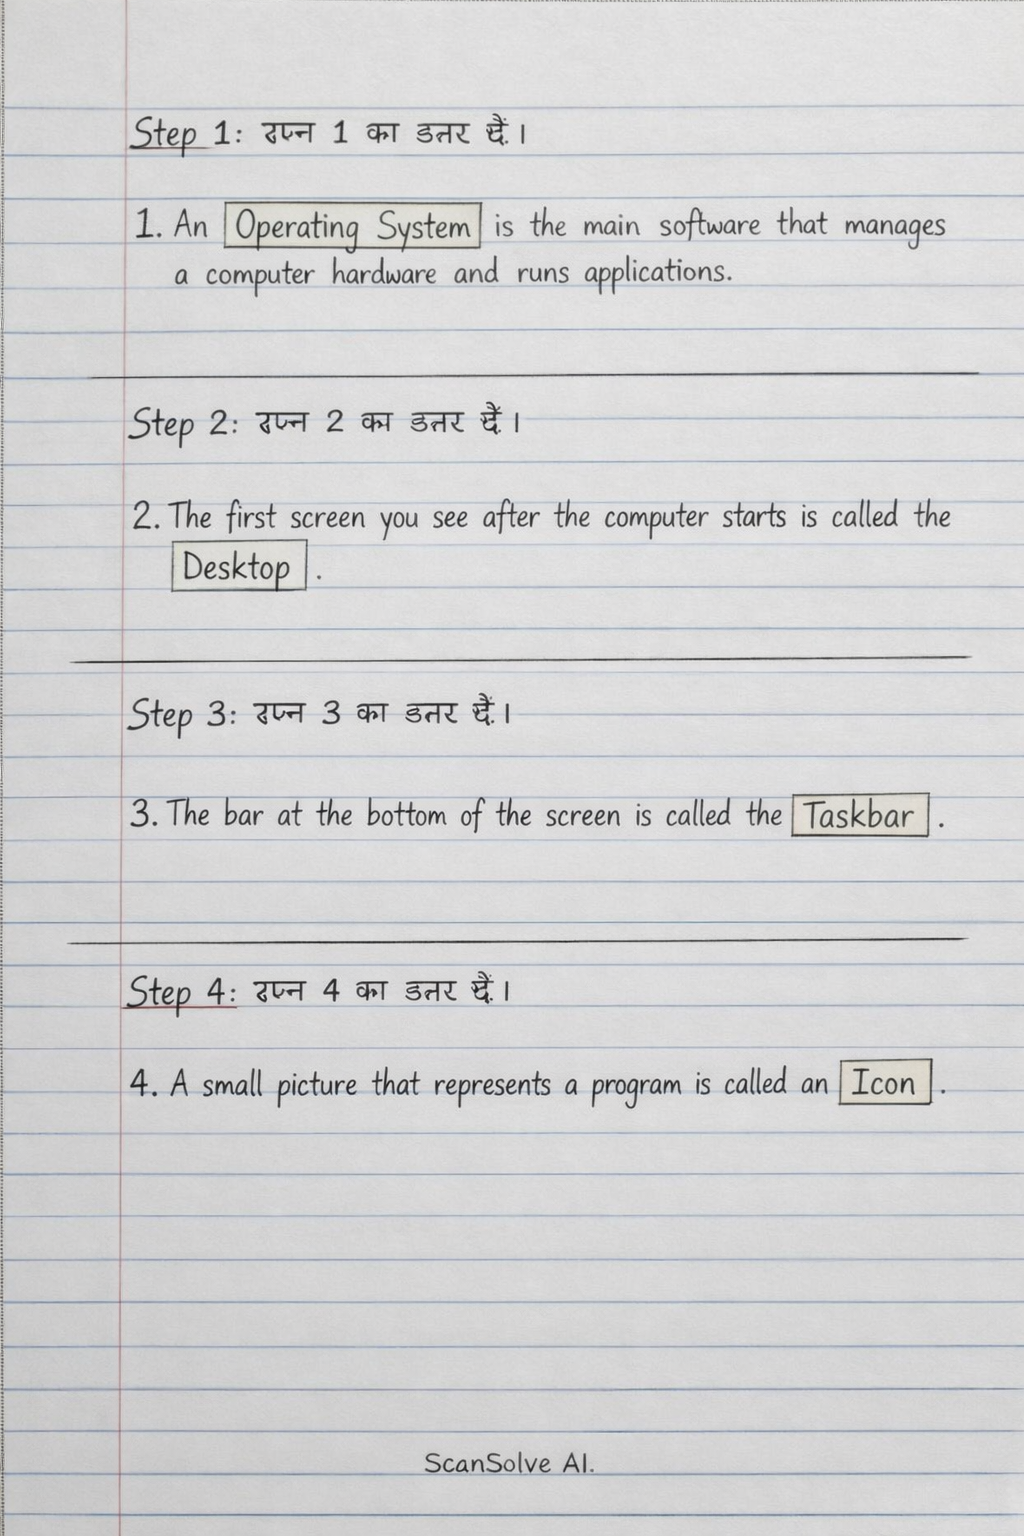 Step 1: 1 का
1. An Operating System is the main software that manages
a computer hardware and runs applications.
Step 2: 2 का
2. The first screen you see after the computer starts is called the
Desktop .
Step 3: 3 का
3. The bar at the bottom of the screen is called the Taskbar .
Step 4: 4 का
4. A small picture that represents a program is called an Icon .
ScanSolve AI.